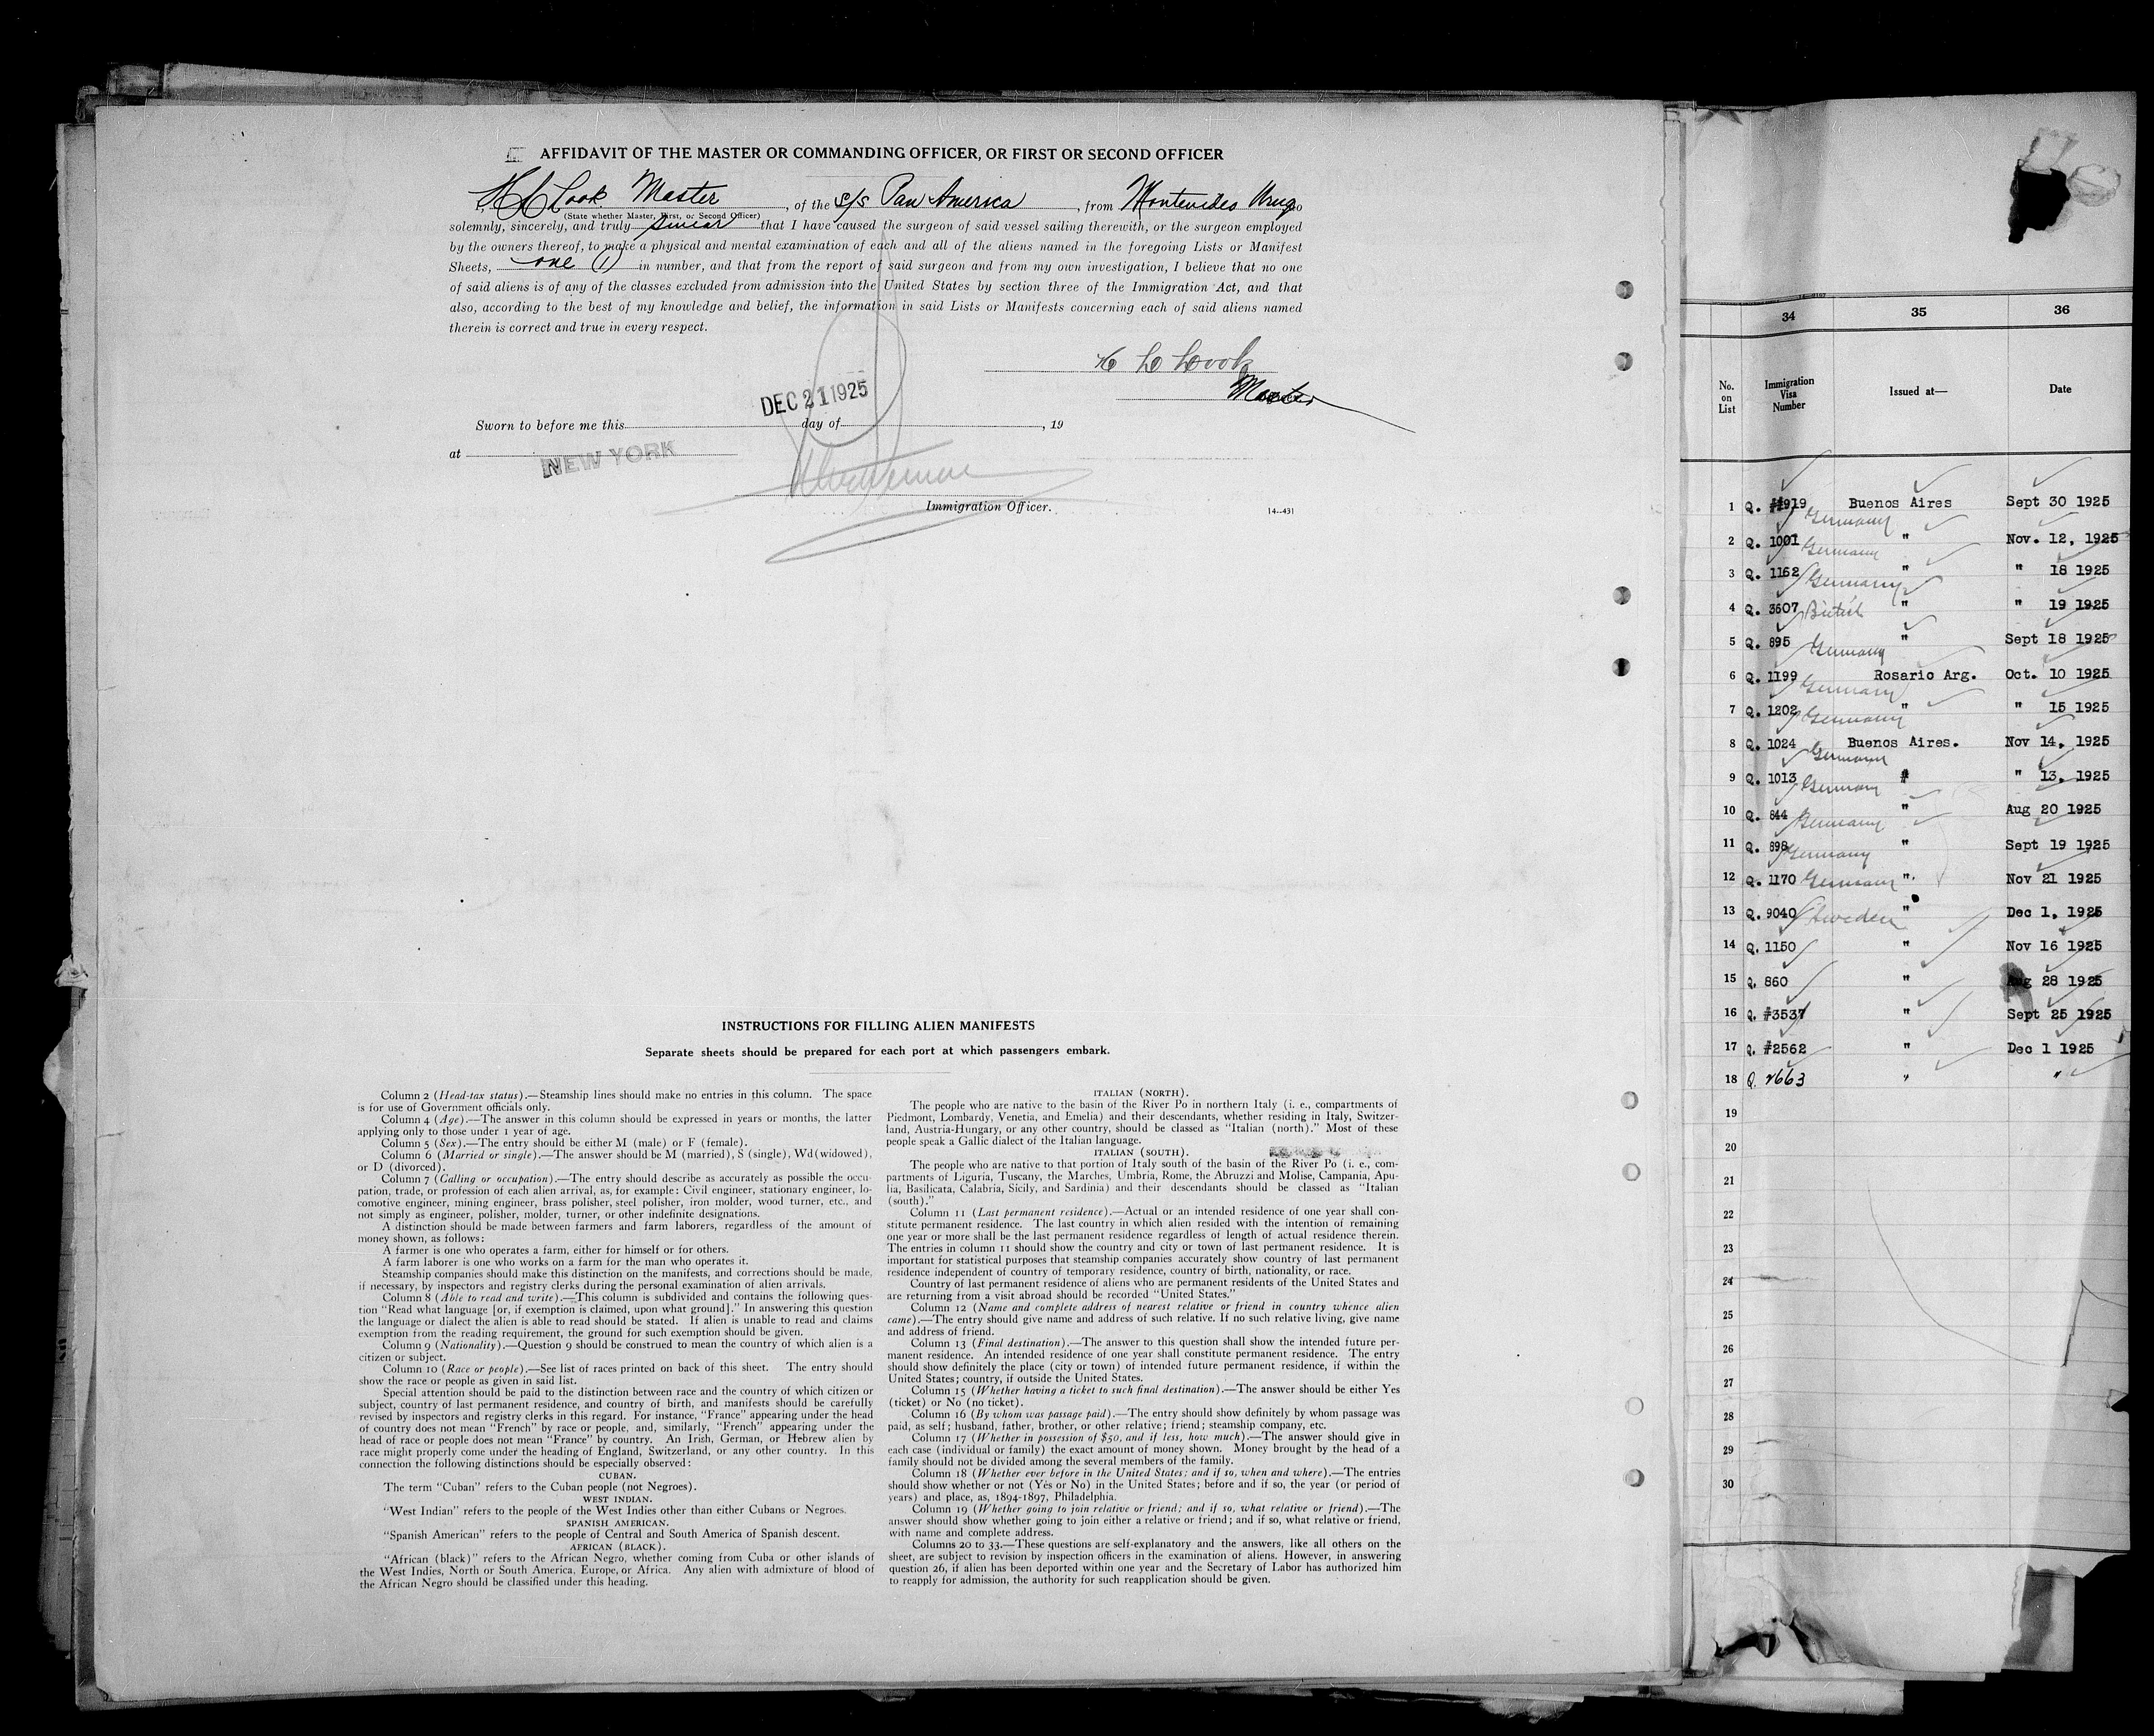 AFFIDAVIT OF THE MASTER OR COMMANDING OFFICER, OR FIRST OR SECOND OFFICER
Master, of the S/S Pan America, from Montevideo Urug
(State whether Master, First, or Second Officer)
solemnly, sincerely, and truly swear that I have caused the surgeon of said vessel sailing therewith, or the surgeon employed
by the owners thereof, to make a physical and mental examination of each and all of the aliens named in the foregoing Lists or Manifest
Sheets, one (1) in number, and that from the report of said surgeon and from my own investigation, I believe that no one
of said aliens is of any of the classes excluded from admission into the United States by section three of the Immigration Act, and that
also, according to the best of my knowledge and belief, the information in said Lists or Manifests concerning each of said aliens named
therein is correct and true in every respect.
Master
DEC 21 1925
Sworn to before me this day of , 19
at NEW YORK
Immigration Officer.
14—431
INSTRUCTIONS FOR FILLING ALIEN MANIFESTS
Separate sheets should be prepared for each port at which passengers embark.
Column 2 (Head-tax status).—Steamship lines should make no entries in this column. The space
is for use of Government officials only.
Column 4 (Age).—The answer in this column should be expressed in years or months, the latter
applying only to those under 1 year of age.
Column 5 (Sex).—The entry should be either M (male) or F (female).
Column 6 (Married or single).—The answer should be M (married), S (single), Wd(widowed),
or D (divorced).
Column 7 (Calling or occupation).—The entry should describe as accurately as possible the occu-
pation, trade, or profession of each alien arrival, as, for example: Civil engineer, stationary engineer, lo-
comotive engineer, mining engineer, brass polisher, steel polisher, iron molder, wood turner, etc., and
not simply as engineer, polisher, molder, turner, or other indefinite designations.
A distinction should be made between farmers and farm laborers, regardless of the amount of
money shown, as follows:
A farmer is one who operates a farm, either for himself or for others.
A farm laborer is one who works on a farm for the man who operates it.
Steamship companies should make this distinction on the manifests, and corrections should be made,
if necessary, by inspectors and registry clerks during the personal examination of alien arrivals.
Column 8 (Able to read and write).—This column is subdivided and contains the following ques-
tion "Read what language [or, if exemption is claimed, upon what ground]." In answering this question
the language or dialect the alien is able to read should be stated. If alien is unable to read and claims
exemption from the reading requirement, the ground for such exemption should be given.
Column 9 (Nationality).—Question 9 should be construed to mean the country of which alien is a
citizen or subject.
Column 10 (Race or people).—See list of races printed on back of this sheet. The entry should
show the race or people as given in said list.
Special attention should be paid to the distinction between race and the country of which citizen or
subject, country of last permanent residence, and country of birth, and manifests should be carefully
revised by inspectors and registry clerks in this regard. For instance, "France" appearing under the head
of country does not mean "French" by race or people, and, similarly, "French" appearing under the
head of race or people does not mean "France" by country. An Irish, German, or Hebrew alien by
race might properly come under the heading of England, Switzerland, or any other country. In this
connection the following distinctions should be especially observed:
CUBAN.
The term "Cuban" refers to the Cuban people (not Negroes).
WEST INDIAN.
"West Indian" refers to the people of the West Indies other than either Cubans or Negroes.
SPANISH AMERICAN.
"Spanish American" refers to the people of Central and South America of Spanish descent.
AFRICAN (BLACK).
"African (black)" refers to the African Negro, whether coming from Cuba or other islands of
the West Indies, North or South America, Europe, or Africa. Any alien with admixture of blood of
the African Negro should be classified under this heading.
ITALIAN (NORTH).
The people who are native to the basin of the River Po in northern Italy (i. e., compartments of
Piedmont, Lombardy, Venetia, and Emelia) and their descendants, whether residing in Italy, Switzer-
land, Austria-Hungary, or any other country, should be classed as "Italian (north)." Most of these
people speak a Gallic dialect of the Italian language.
ITALIAN (SOUTH).
The people who are native to that portion of Italy south of the basin of the River Po (i. e., com-
partments of Liguria, Tuscany, the Marches, Umbria, Rome, the Abruzzi and Molise, Campania, Apu-
lia, Basilicata, Calabria, Sicily, and Sardinia) and their descendants should be classed as "Italian
(south)."
Column 11 (Last permanent residence).—Actual or an intended residence of one year shall con-
stitute permanent residence. The last country in which alien resided with the intention of remaining
one year or more shall be the last permanent residence regardless of length of actual residence therein.
The entries in column 11 should show the country and city or town of last permanent residence. It is
important for statistical purposes that steamship companies accurately show country of last permanent
residence independent of country of temporary residence, country of birth, nationality, or race.
Country of last permanent residence of aliens who are permanent residents of the United States and
are returning from a visit abroad should be recorded "United States."
Column 12 (Name and complete address of nearest relative or friend in country whence alien
came).—The entry should give name and address of such relative. If no such relative living, give name
and address of friend.
Column 13 (Final destination).—The answer to this question shall show the intended future per-
manent residence. An intended residence of one year shall constitute permanent residence. The entry
should show definitely the place (city or town) of intended future permanent residence, if within the
United States; country, if outside the United States.
Column 15 (Whether having a ticket to such final destination).—The answer should be either Yes
(ticket) or No (no ticket).
Column 16 (By whom was passage paid).—The entry should show definitely by whom passage was
paid, as self; husband, father, brother, or other relative; friend; steamship company, etc.
Column 17 (Whether in possession of $50, and if less, how much).—The answer should give in
each case (individual or family) the exact amount of money shown. Money brought by the head of a
family should not be divided among the several members of the family.
Column 18 (Whether ever before in the United States; and if so, when and where).—The entries
should show whether or not (Yes or No) in the United States; before and if so, the year (or period of
years) and place, as, 1894-1897, Philadelphia.
Column 19 (Whether going to join relative or friend; and if so, what relative or friend).—The
answer should show whether going to join either a relative or friend; and if so, what relative or friend,
with name and complete address.
Columns 20 to 33.—These questions are self-explanatory and the answers, like all others on the
sheet, are subject to revision by inspection officers in the examination of aliens. However, in answering
question 26, if alien has been deported within one year and the Secretary of Labor has authorized him
to reapply for admission, the authority for such reapplication should be given.
34 35 36
No. on List Immigration Visa Number Issued at— Date
1 Q. #919 Germany Buenos Aires Sept 30 1925
2 Q. 1001 Germany " Nov. 12, 1925
3 Q. 1162 Germany " " 18 1925
4 Q. 3607 British " " 19 1925
5 Q. 895 Germany " Sept 18 1925
6 Q. 1199 Germany Rosario Arg. Oct. 10 1925
7 Q. 1202 Germany " " 15 1925
8 Q. 1024 Germany Buenos Aires. Nov 14, 1925
9 Q. 1013 Germany " " 13, 1925
10 Q. 844 Germany " Aug 20 1925
11 Q. 898 Germany " Sept 19 1925
12 Q. 1170 Germany " Nov 21 1925
13 Q. 9040 Sweden " Dec 1, 1925
14 Q. 1150 " Nov 16 1925
15 Q. 860 " Aug 28 1925
16 Q. #3537 " Sept 25 1925
17 Q. #2562 " Dec 1 1925
18 Q. 2663 " "
19
20
21
22
23
24
25
26
27
28
29
30